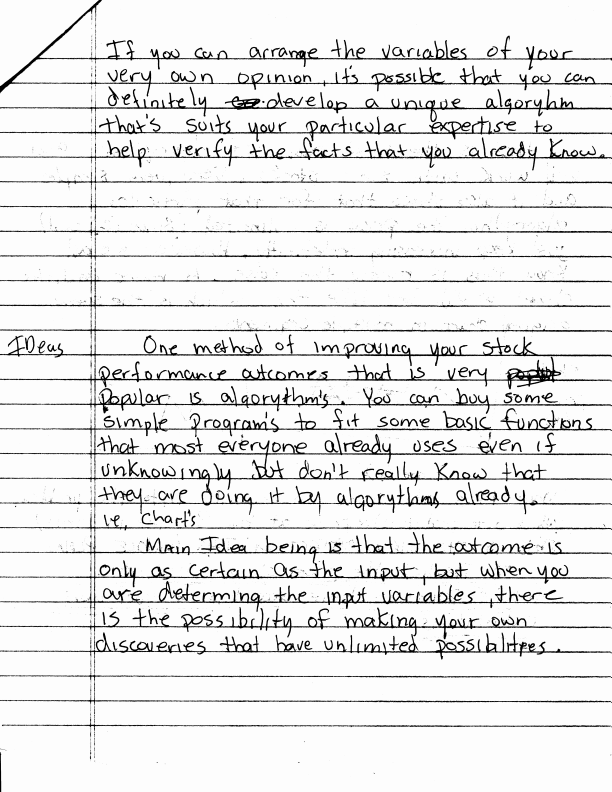 If you can arrange the variables of your
very own opinion, it's possible that you can
definitely develop a unique algorythm
that's suits your particular expertise to
help verify the facts that you already know.
IDeas
One method of improving your stock
performance outcomes that is very
Popular is algorythm's. You can buy some
simple program's to fit some basic functions
that most everyone already uses even if
unknowingly but don't really know that
they are doing it by algorythms already.
ie, chart's
Main Idea being is that the outcome is
only as certain as the input, but when you
are determing the input variables, there
is the possibility of making your own
discoveries that have unlimited possibilities.